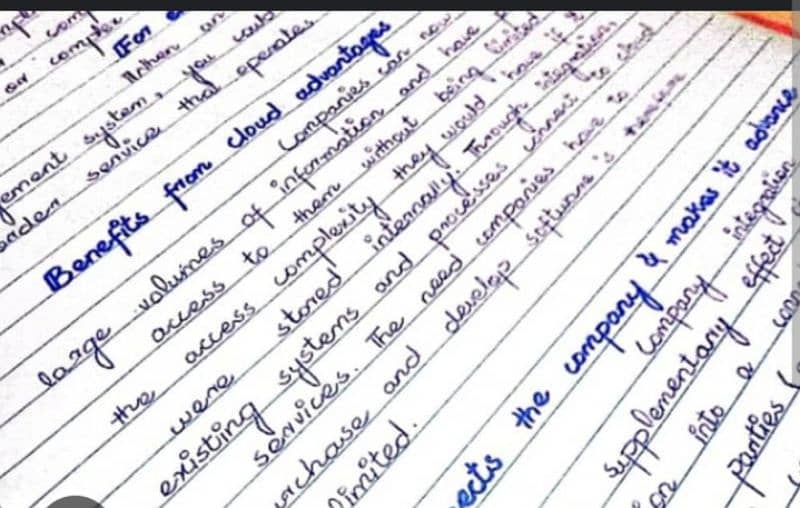 or complex
For
When an
ement system, you could
ender service that operates
Benefits from cloud advantages
Companies can now
large volumes of information and have
access to them without being limited
the access complexity they would have if
were stored internally. Through integration,
existing systems and processes connect to cloud
services. The need companies have to
rchase and develop software is therefore
limited.
ects the company & makes it advance
Company integration
supplementary effect
on into a
parties (